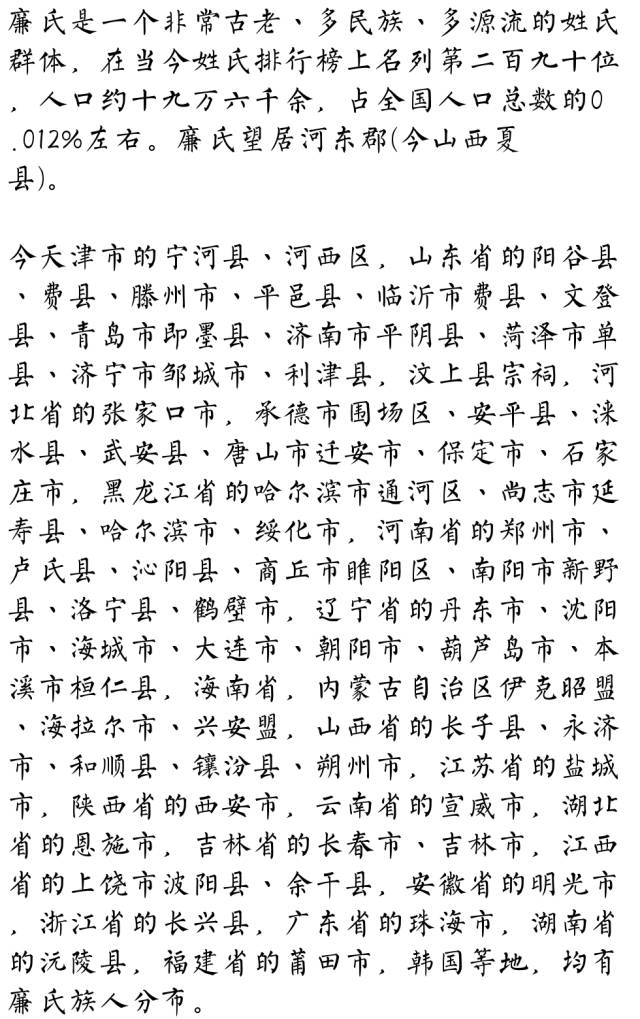 廉氏是一个非常古老、多民族、多源流的姓氏
群体，在当今姓氏排行榜上名列第二百九十位
，人口约十九万六千余，占全国人口总数的0
.012%左右。廉氏望居河东郡(今山西夏
县)。
今天津市的宁河县、河西区，山东省的阳谷县
、费县、滕州市、平邑县、临沂市费县、文登
县、青岛市即墨县、济南市平阴县、菏泽市单
县、济宁市邹城市、利津县，汶上县宗祠，河
北省的张家口市，承德市围场区、安平县、涞
水县、武安县、唐山市迁安市、保定市、石家
庄市，黑龙江省的哈尔滨市通河区、尚志市延
寿县、哈尔滨市、绥化市，河南省的郑州市、
卢氏县、沁阳县、商丘市睢阳区、南阳市新野
县、洛宁县、鹤壁市，辽宁省的丹东市、沈阳
市、海城市、大连市、朝阳市、葫芦岛市、本
溪市桓仁县，海南省，内蒙古自治区伊克昭盟
、海拉尔市、兴安盟，山西省的长子县、永济
市、和顺县、镶汾县、朔州市，江苏省的盐城
市，陕西省的西安市，云南省的宣威市，湖北
省的恩施市，吉林省的长春市、吉林市，江西
省的上饶市波阳县、余干县，安徽省的明光市
，浙江省的长兴县，广东省的珠海市，湖南省
的沅陵县，福建省的莆田市，韩国等地，均有
廉氏族人分布。